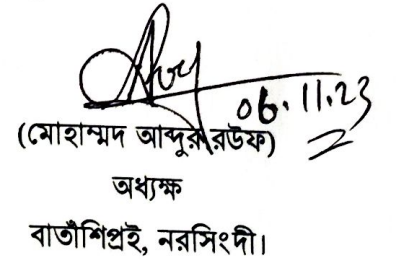 06.11.23
(মোহাম্মদ আব্দুর রউফ)
অধ্যক্ষ
বাতাঁশিপ্রই, নরসিংদী।